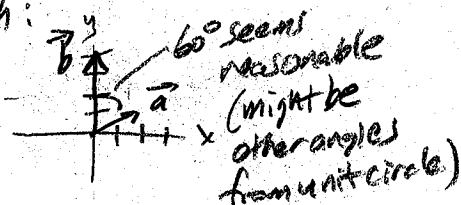 h:
y
b
60° seems
reasonable
a
(might be
x
other angles
from unit circle)